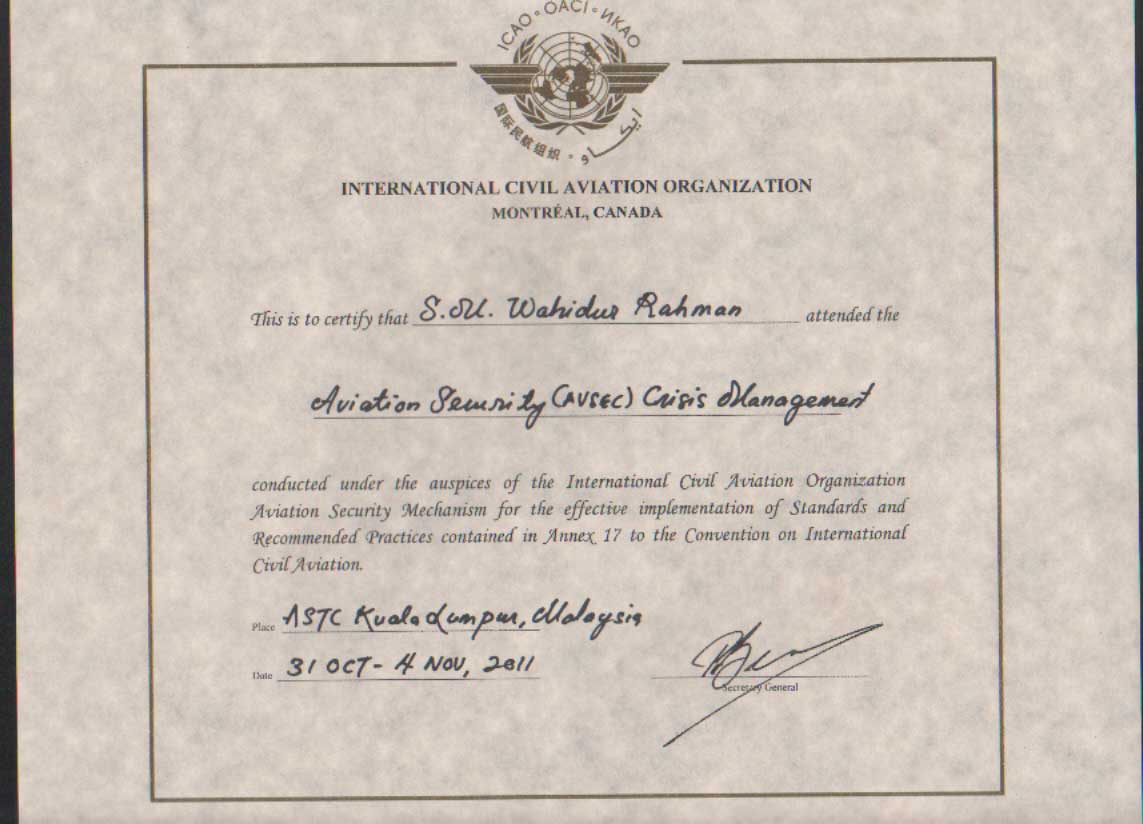 ICAO · OACI · ИКАО
国际民航组织 · ايكاو
INTERNATIONAL CIVIL AVIATION ORGANIZATION
MONTRÉAL, CANADA
This is to certify that S.M. Wahidur Rahman attended the
Aviation Security (AVSEC) Crisis Management
conducted under the auspices of the International Civil Aviation Organization
Aviation Security Mechanism for the effective implementation of Standards and
Recommended Practices contained in Annex 17 to the Convention on International
Civil Aviation.
Place ASTC Kuala Lumpur, Malaysia
Date 31 OCT - 4 NOV, 2011
Secretary General